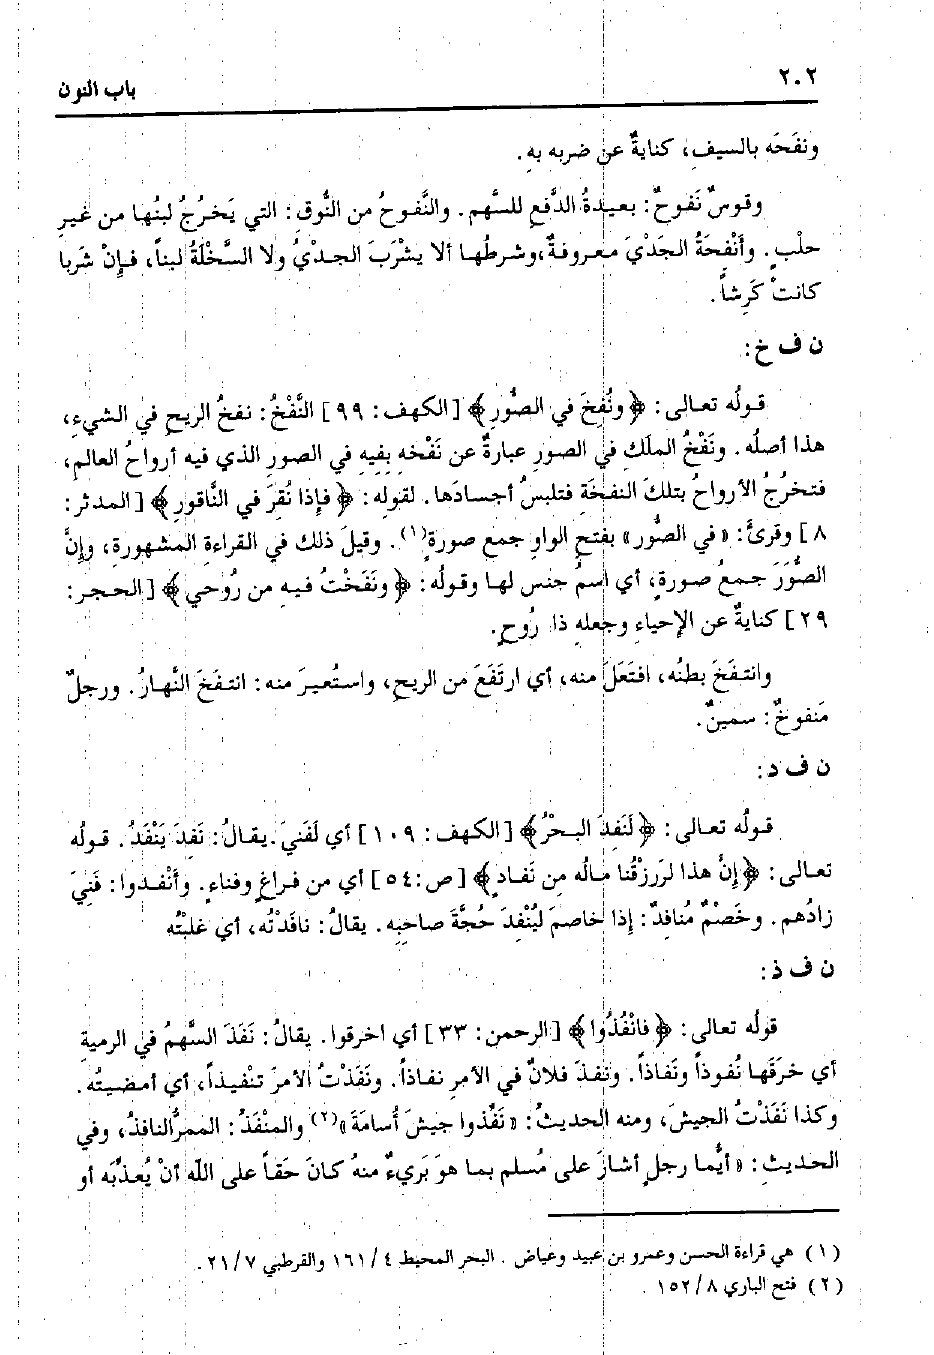 ٢٠٢
باب النون
ونفَحَه بالسيف، كنايةٌ عن ضربه بهِ.
وقوسٌ نَفوحٌ: بعيدةُ الدَّفعِ للسَّهم. والنَّفوحُ من النُّوقِ: التي يَخرُجُ لبنُها من غيرِ
حلْبٍ. وأَنْفحَةُ الجَدْيَ معروفةٌ،وشرطُها ألا يشْرَبَ الجديُ ولا السَّخْلَةُ لبناً، فإنْ شَربا
كانتْ كَرِشاً.
ن ف خ:
قولُه تعالى: ﴿ونُفِخَ في الصُّورِ﴾ [الكهف: ٩٩] النَّفْخُ: نفخُ الريحِ في الشيءِ،
هذا أصلُه. ونَفْخُ الملَكِ في الصور عبارةٌ عن نَفْخه بِفِيهِ في الصورِ الذي فيه أرواحُ العالم،
فتخرُجُ الأرواحُ بتلكَ النفخَةِ فتلبسُ أجسادَها. لقوله: ﴿فإذا نُقِرَ في النَّاقورِ﴾ [المدثر:
٨] وقرئَ: «في الصُّور» بفتحِ الواوِ جمع صورة(١). وقيلَ ذلك في القراءةِ المشهورةِ، وإنَّ
الصُّوَرَ جمعُ صورةٍ، أي اسمُ جنس لها وقولُه: ﴿ونَفَخْتُ فيهِ من رُوحي﴾ [الحجر:
٢٩] كنايةٌ عن الإحياءِ وجعلهِ ذا رُوحٍ.
وانتفَخَ بطنُه، افتعَلَ منه، أي ارتَفَعَ من الريحِ، واستُعيرَ منه: انتفَخَ النَّهارُ. ورجلٌ
مَنفوخٌ: سمينٌ.
ن ف د:
قولُه تعالى: ﴿لَنَفِدَ البحْرُ﴾ [الكهف: ١٠٩] أي لَفَنيَ. يقالُ: نَفِدَ يَنْفَدُ. قولُه
تعالى: ﴿إِنَّ هذا لَرِزْقُنا مالُه مِن نَفادٍ﴾ [ص:٥٤] أي من فراغٍ وفناءٍ. وأَنْفدوا: فَنِيَ
زادُهم. وخَصْمٌ مُنافِدٌ: إذا خاصمَ ليُنْفِدَ حُجَّةَ صاحبِه. يقالُ: نافَدْتُه، أي غلبتُه
ن ف ذ:
قولُه تعالى: ﴿فانْفُذُوا﴾ [الرحمن: ٣٣] أي اخرقوا. يقالُ: نَفَذَ السَّهمُ في الرميةِ
أي خَرَقَها نُفوذاً ونَفاذاً. ونفذَ فلانٌ في الأمرِ نفاذاً. ونَفَذْتُ الأمرَ تنْفيذاً، أي أمضيتُه.
وكذا نَفَذْتُ الجيشَ، ومنه الحديثُ: «نَفِّذوا جيشَ أُسامَةَ»(٢) والمنْفَذُ: الممرُّ النافذُ، وفي
الحديثِ: «أيُّما رجلٍ أشارَ على مُسلم بما هوَ بَريءٌ منهُ كانَ حَقاً على اللّه أنْ يُعذِّبَه أو
(١) هي قراءة الحسن وعمرو بن عبيد وعياض . البحر المحيط ٤/ ١٦١ والقرطبي ٧/ ٢١.
(٢) فتح الباري ٨/ ١٥٢ .